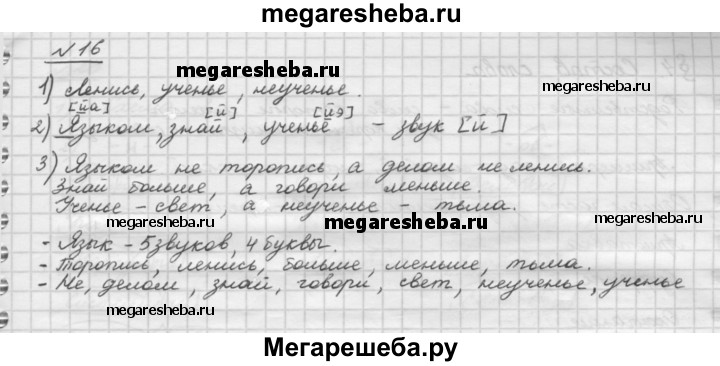 megaresheba.ru
N 16
megaresheba.ru
1) Ленись, ученье, неученье.
[йа] [й] [йэ]
2) Языком, знай, ученье - звук [й]
3) Языком не торопись, а делом не ленись.
Знай больше, а говори меньше.
megaresheba.ru
Ученье - свет, а неученье - тьма.
megaresheba.ru
- Язык - 5 звуков, 4 буквы.
- Торопись, ленись, больше, меньше, тьма.
megaresheba.ru
- Не, делом, знай, говори, свет, неученье, ученье
Мегарешеба.ру